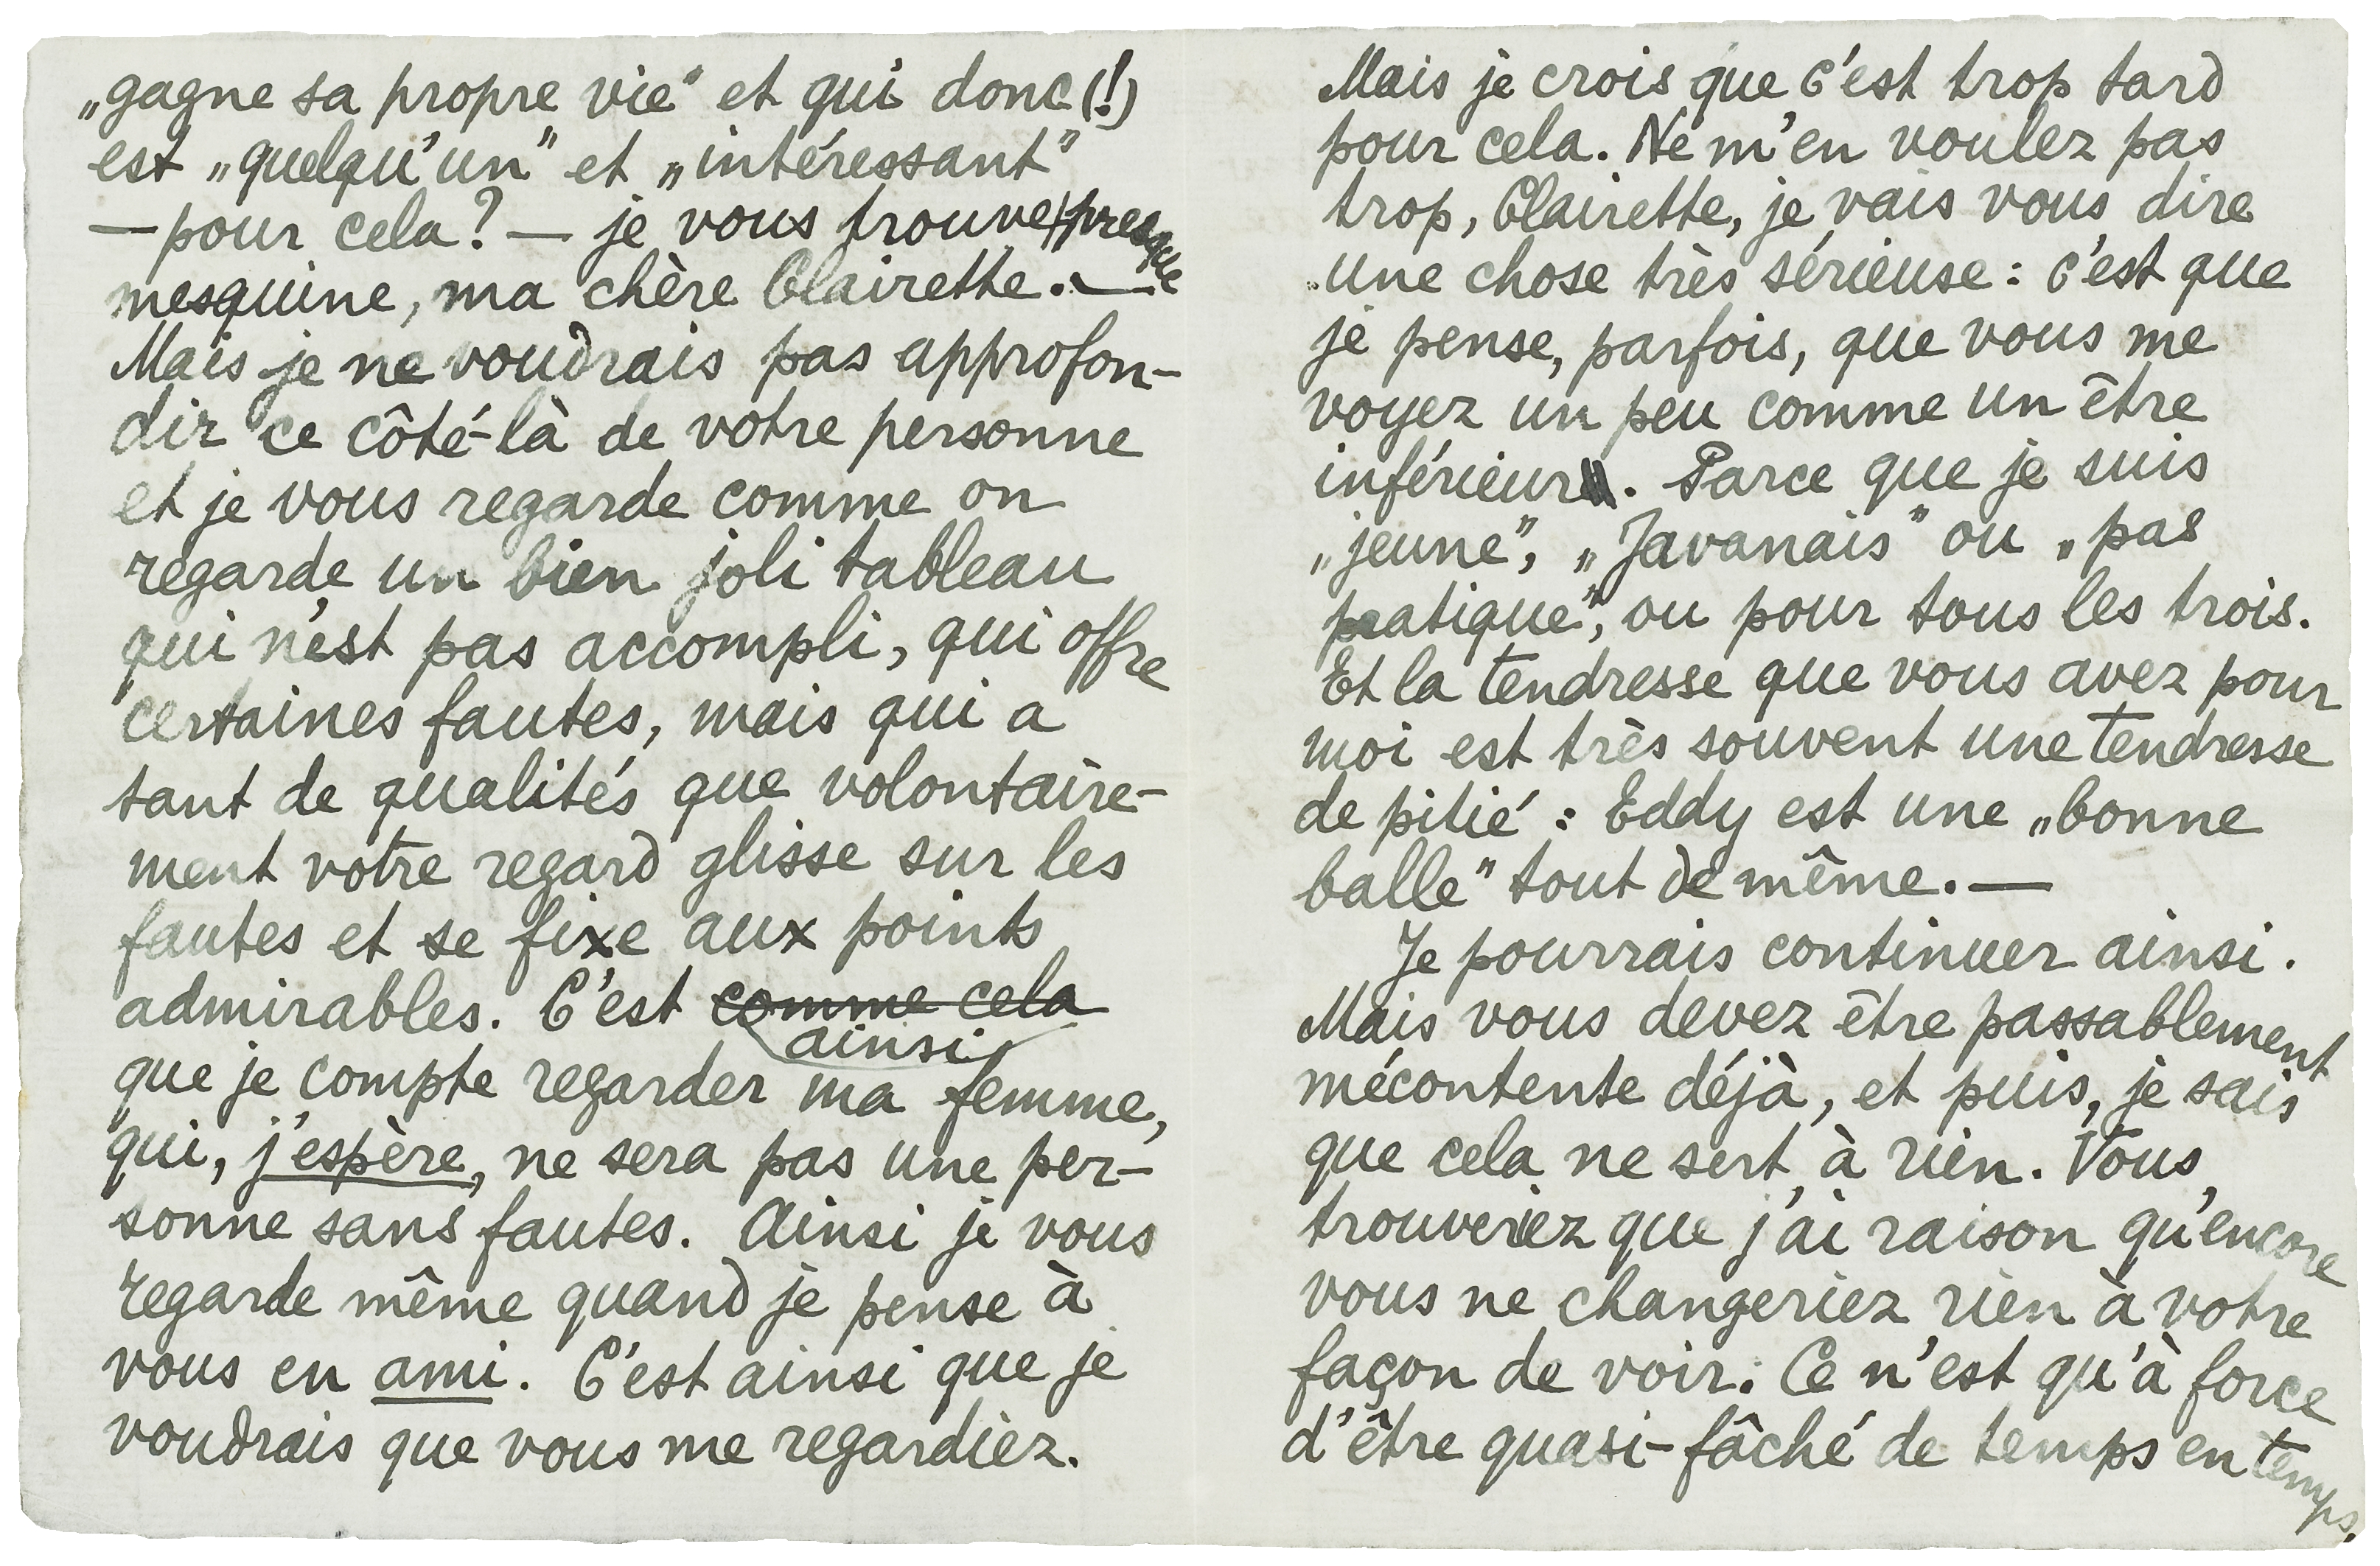 „gagne sa propre vie" et qui donc (!)
est „quelqu'un" et „intéressant"
— pour cela? — je vous trouve presque
mesquine, ma chère Clairette. —
Mais je ne voudrais pas approfon-
dir ce côté-là de votre personne
et je vous regarde comme on
regarde un bien joli tableau
qui n'est pas accompli, qui offre
certaines fautes, mais qui a
tant de qualités que volontaire-
ment votre regard glisse sur les
fautes et se fixe aux points
admirables. C'est comme cela
ainsi
que je compte regarder ma femme,
qui, j'espère, ne sera pas une per-
sonne sans fautes. Ainsi je vous
regarde même quand je pense à
vous en ami. C'est ainsi que je
voudrais que vous me regardiez.
Mais je crois que c'est trop tard
pour cela. Ne m'en voulez pas
trop, Clairette, je vais vous dire
une chose très sérieuse : c'est que
je pense, parfois, que vous me
voyez un peu comme un être
inférieur. Parce que je suis
„jeune", „Javanais" ou „pas
pratique", ou pour tous les trois.
Et la tendresse que vous avez pour
moi est très souvent une tendresse
de pitié : Eddy est une „bonne
balle" tout de même. —
Je pourrais continuer ainsi.
Mais vous devez être passablement
mécontente déjà, et puis, je sais
que cela ne sert à rien. Vous
trouveriez que j'ai raison qu'encore
vous ne changeriez rien à votre
façon de voir. Ce n'est qu'à force
d'être quasi-fâché de temps en temps,